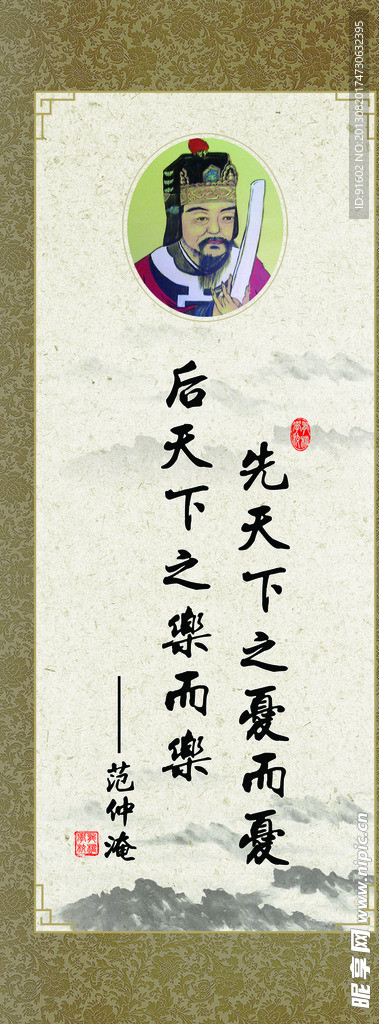 先天下之憂而憂
后天下之樂而樂
——范仲淹
ID:91602 NO:20130820174730632395
昵享网 www.nipic.cn